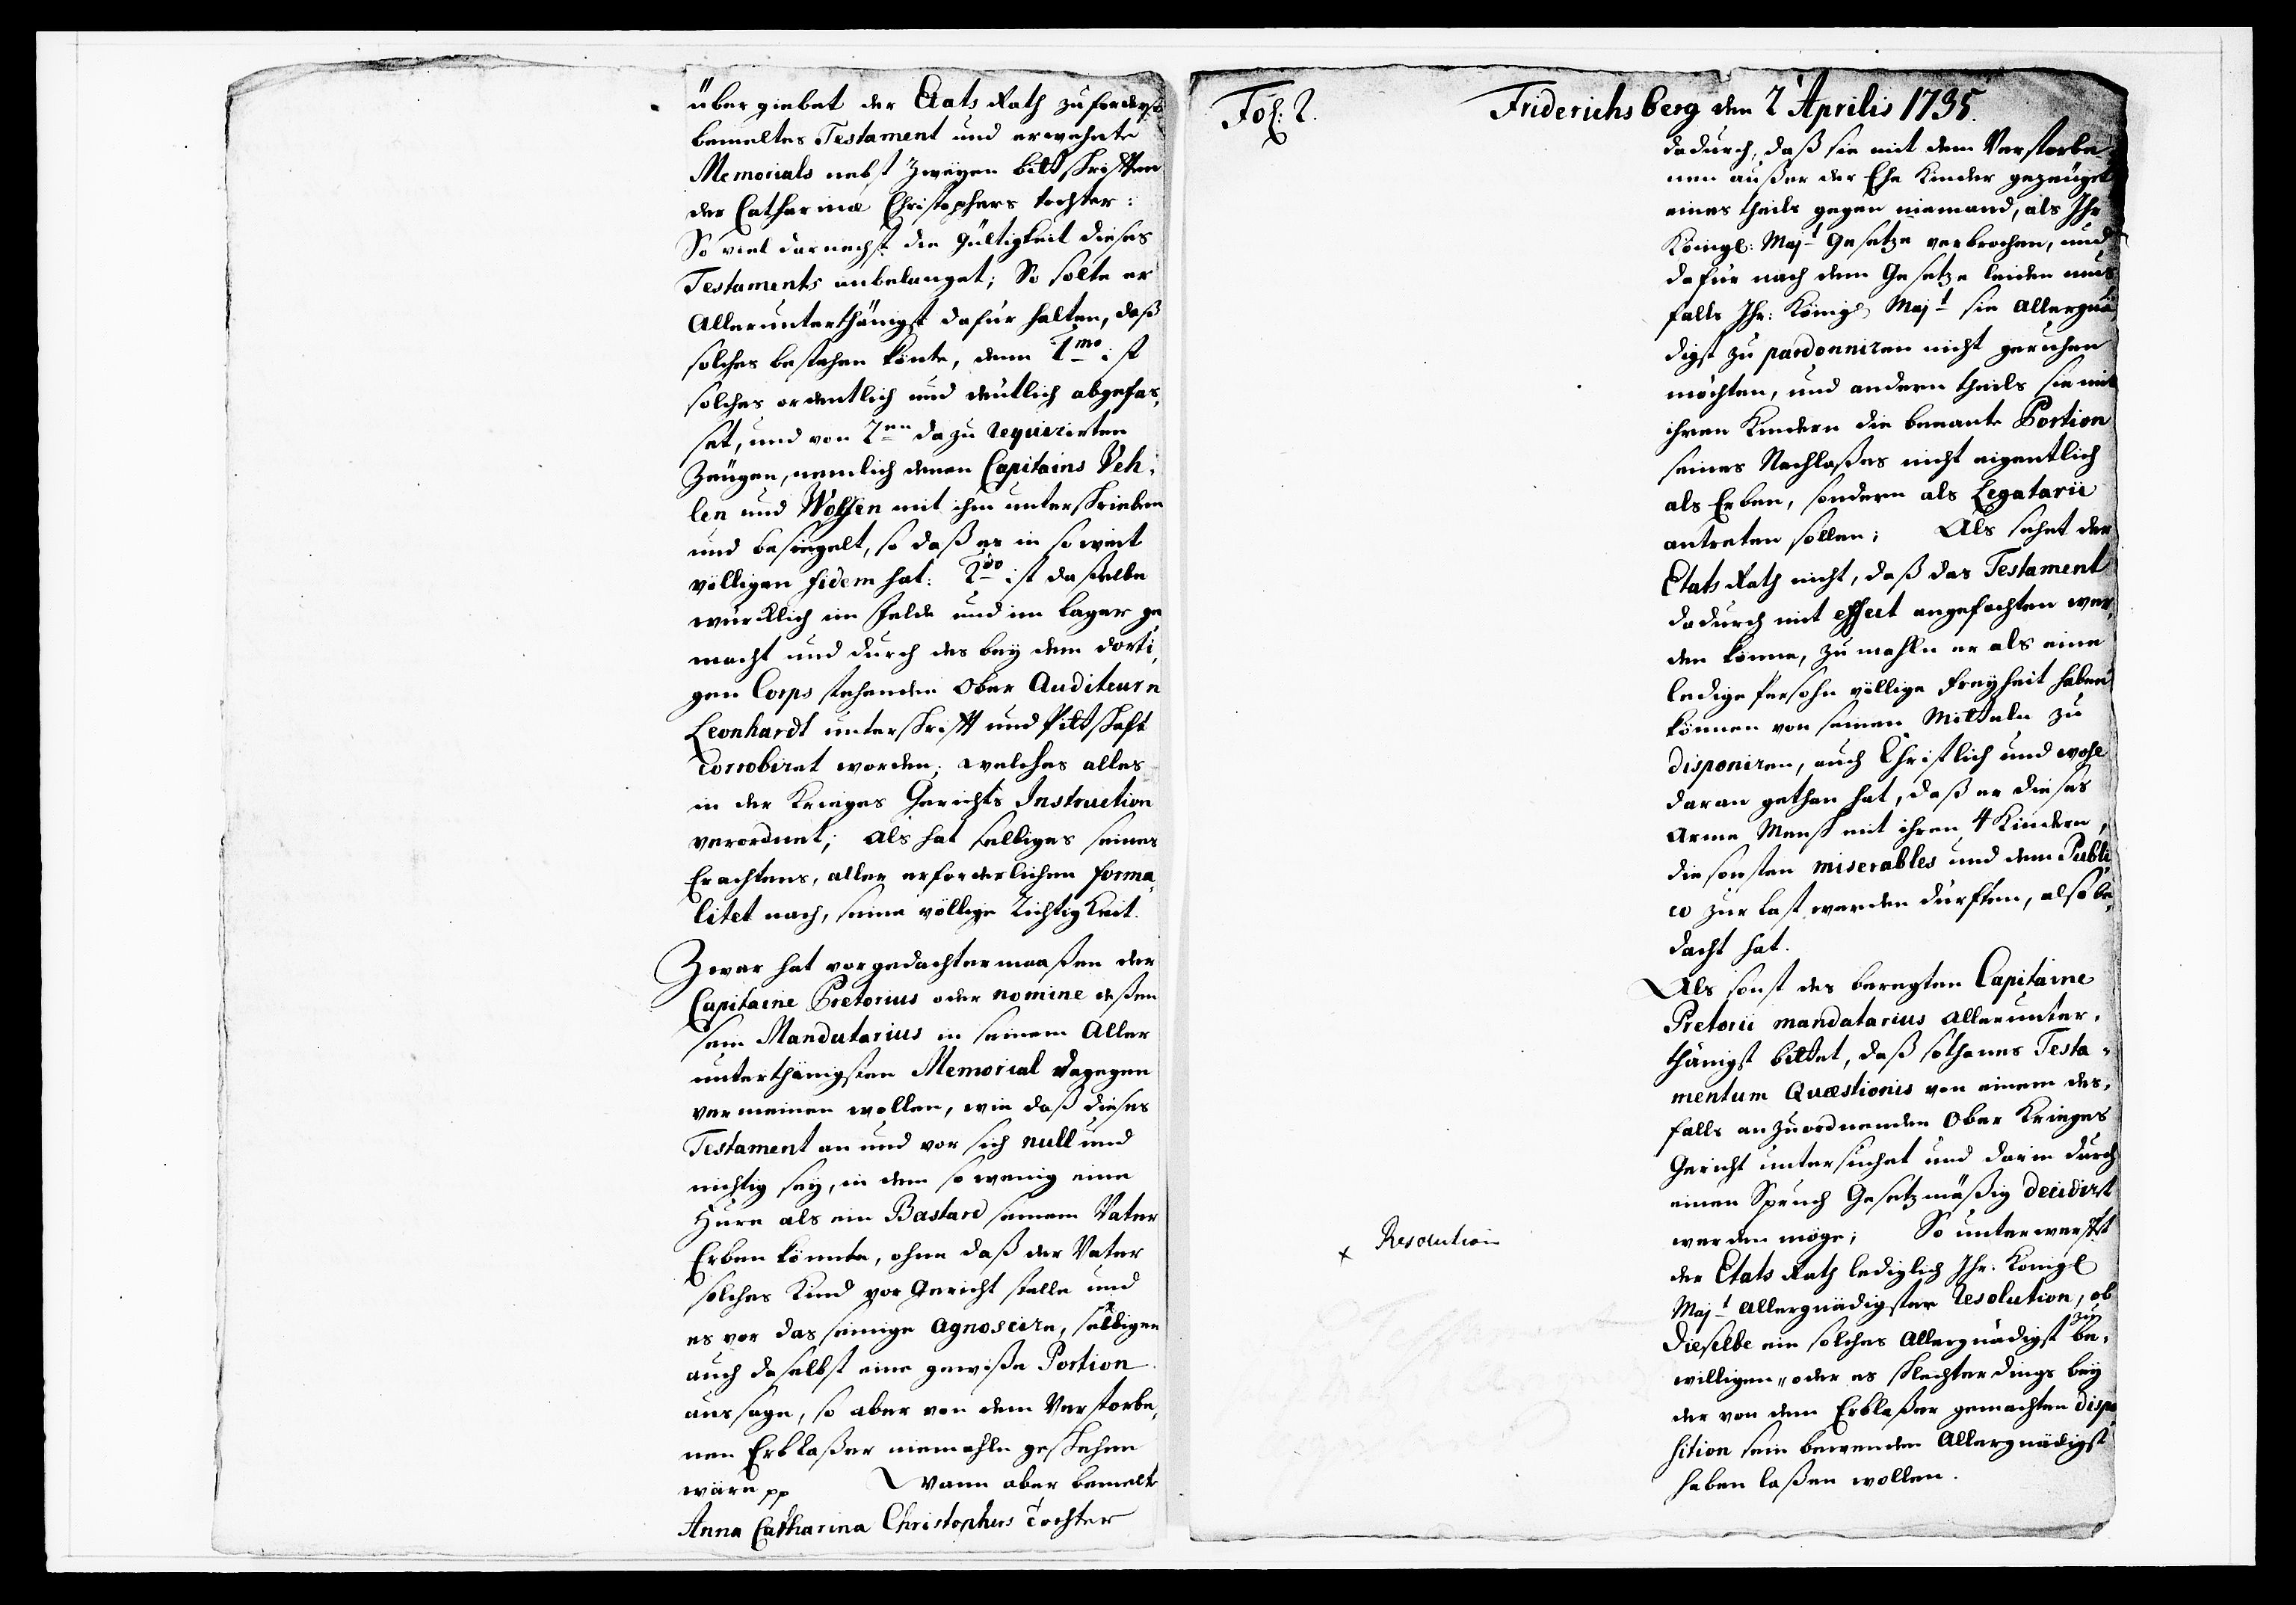 übergiebet der Etats Rath zuforderst
bemeltes Testament und erwehnte
Memorials nebst zweyen bittschrifften
der Catharinæ Christophers tochter:
So viel darnechst die Gültigkeit dieses
Testaments anbelanget; So solte er
Allerunterthänigst dafür halten, daß
solches bestehen könte, denn 1mo ist
solches ordentlich und deutlich abgefas,
set, und von 2en dazu requirirten
Zeugen, nemlich denen Capitains Veh,
len und Wolfen mit ihm unterschrieben
und besiegelt, so daß es in so weit
völligen fidem hat: 2do ist daselbe
würcklich im felde und im lager ge
macht und durch des bey dem dorti,
gen Corps stehenden Ober Auditeurn
Leonhardt unterschrifft und Pittschafft
corrobiret worden; welches alles
in der Krieges Gerichts Instruction
verordnet; Als hat selbiges seines
Erachtens, aller erforderlichen forma,
litet nach, seine völlige Richtigkeit.
Zwar hat vorgedachtermaaßen der
Capitaine Pretorius oder nomine deßen
sein Mandatarius in seinem Aller
unterthänigsten Memorial dagegen
vermeinen wollen, wie daß dieses
Testament an und vor sich null und
nichtig sey, in dem so wenig eine
Hure als ein Bastard seinem Vater
Erben könnte, ohne daß der Vater
solches Kind vor Gericht stelle und
es vor das seinige agnoscire, selbigen
auch daselbst eine gewiße Portion
aussage, so aber von dem Verstorbe,
nen Erblaßer niemahln geschehen
wäre pp Wann aber bemelte
Anna Catharina Christophers Tochter
Fol: 2.
Friderichsberg den 2 Aprilis 1735.
dadurch, daß sie mit dem Verstorbe
nen außer der Ehe Kinder gezeuget
eines theils gegen niemand, als Ihr
Königl: Majt Gesetze verbrochen, und
dafür nach dem Gesetze leiden mus
falls Ihr: Königl Majt sie Allergnä
digst zu pardonniren nicht geruhen
möchten, und andern theils sie mit
ihren Kindern die benante Portion
seines Nachlaßes nicht eigentlich
als Erben, sondern als Legatarii
antreten sollen; Als sehet der
Etats Rath nicht, daß das Testament
dadurch mit effect angefochten wer,
den könne, zu mahln er als eine
ledige persohn völlige freyheit haben
können von seinen Mitteln zu
disponiren, auch Christlich und wohl
daran gethan hat, daß er dieses
Arme Mensch mit ihren 4 Kindern,
die sonsten miserables und dem Publi
co zur last werden dürfften, also be,
dacht hat.
Als sonst des beregten Capitaine
Pretorii mandatarius Allerunter,
thänigst bittet, daß sothanes Testa,
mentum Quæstionis von einem des,
falls anzuordnenden Ober Krieges
Gericht untersuchet und darin durch
einen Spruch Gesetzmäßig decidirt
werden möge; So unterwerfft
der Etats Rath lediglich Ihr: Königl
Majt Allergnädigster Resolution, ob
Dieselbe ein solches Allergnädigst zu be,
willigen, oder es schlechterdings bey
der von dem Erblaßer gemachten dispo
sition sein bewenden Allergnädigst
haben laßen wollen.
x Resolution